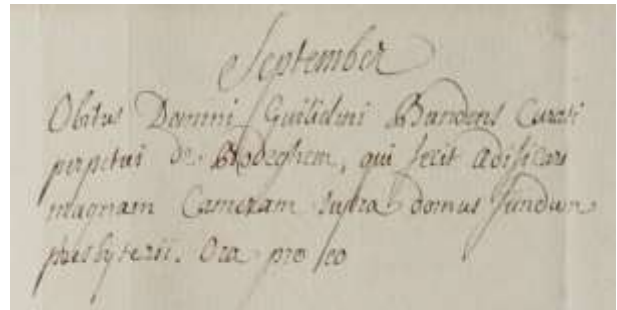 September
Obitus Domini Guilielmi Bandens Curati
perpetui de Bodeghem, qui fecit Ædificari
magnam Cameram supra domus fundum
presbyterii. Ora pro eo